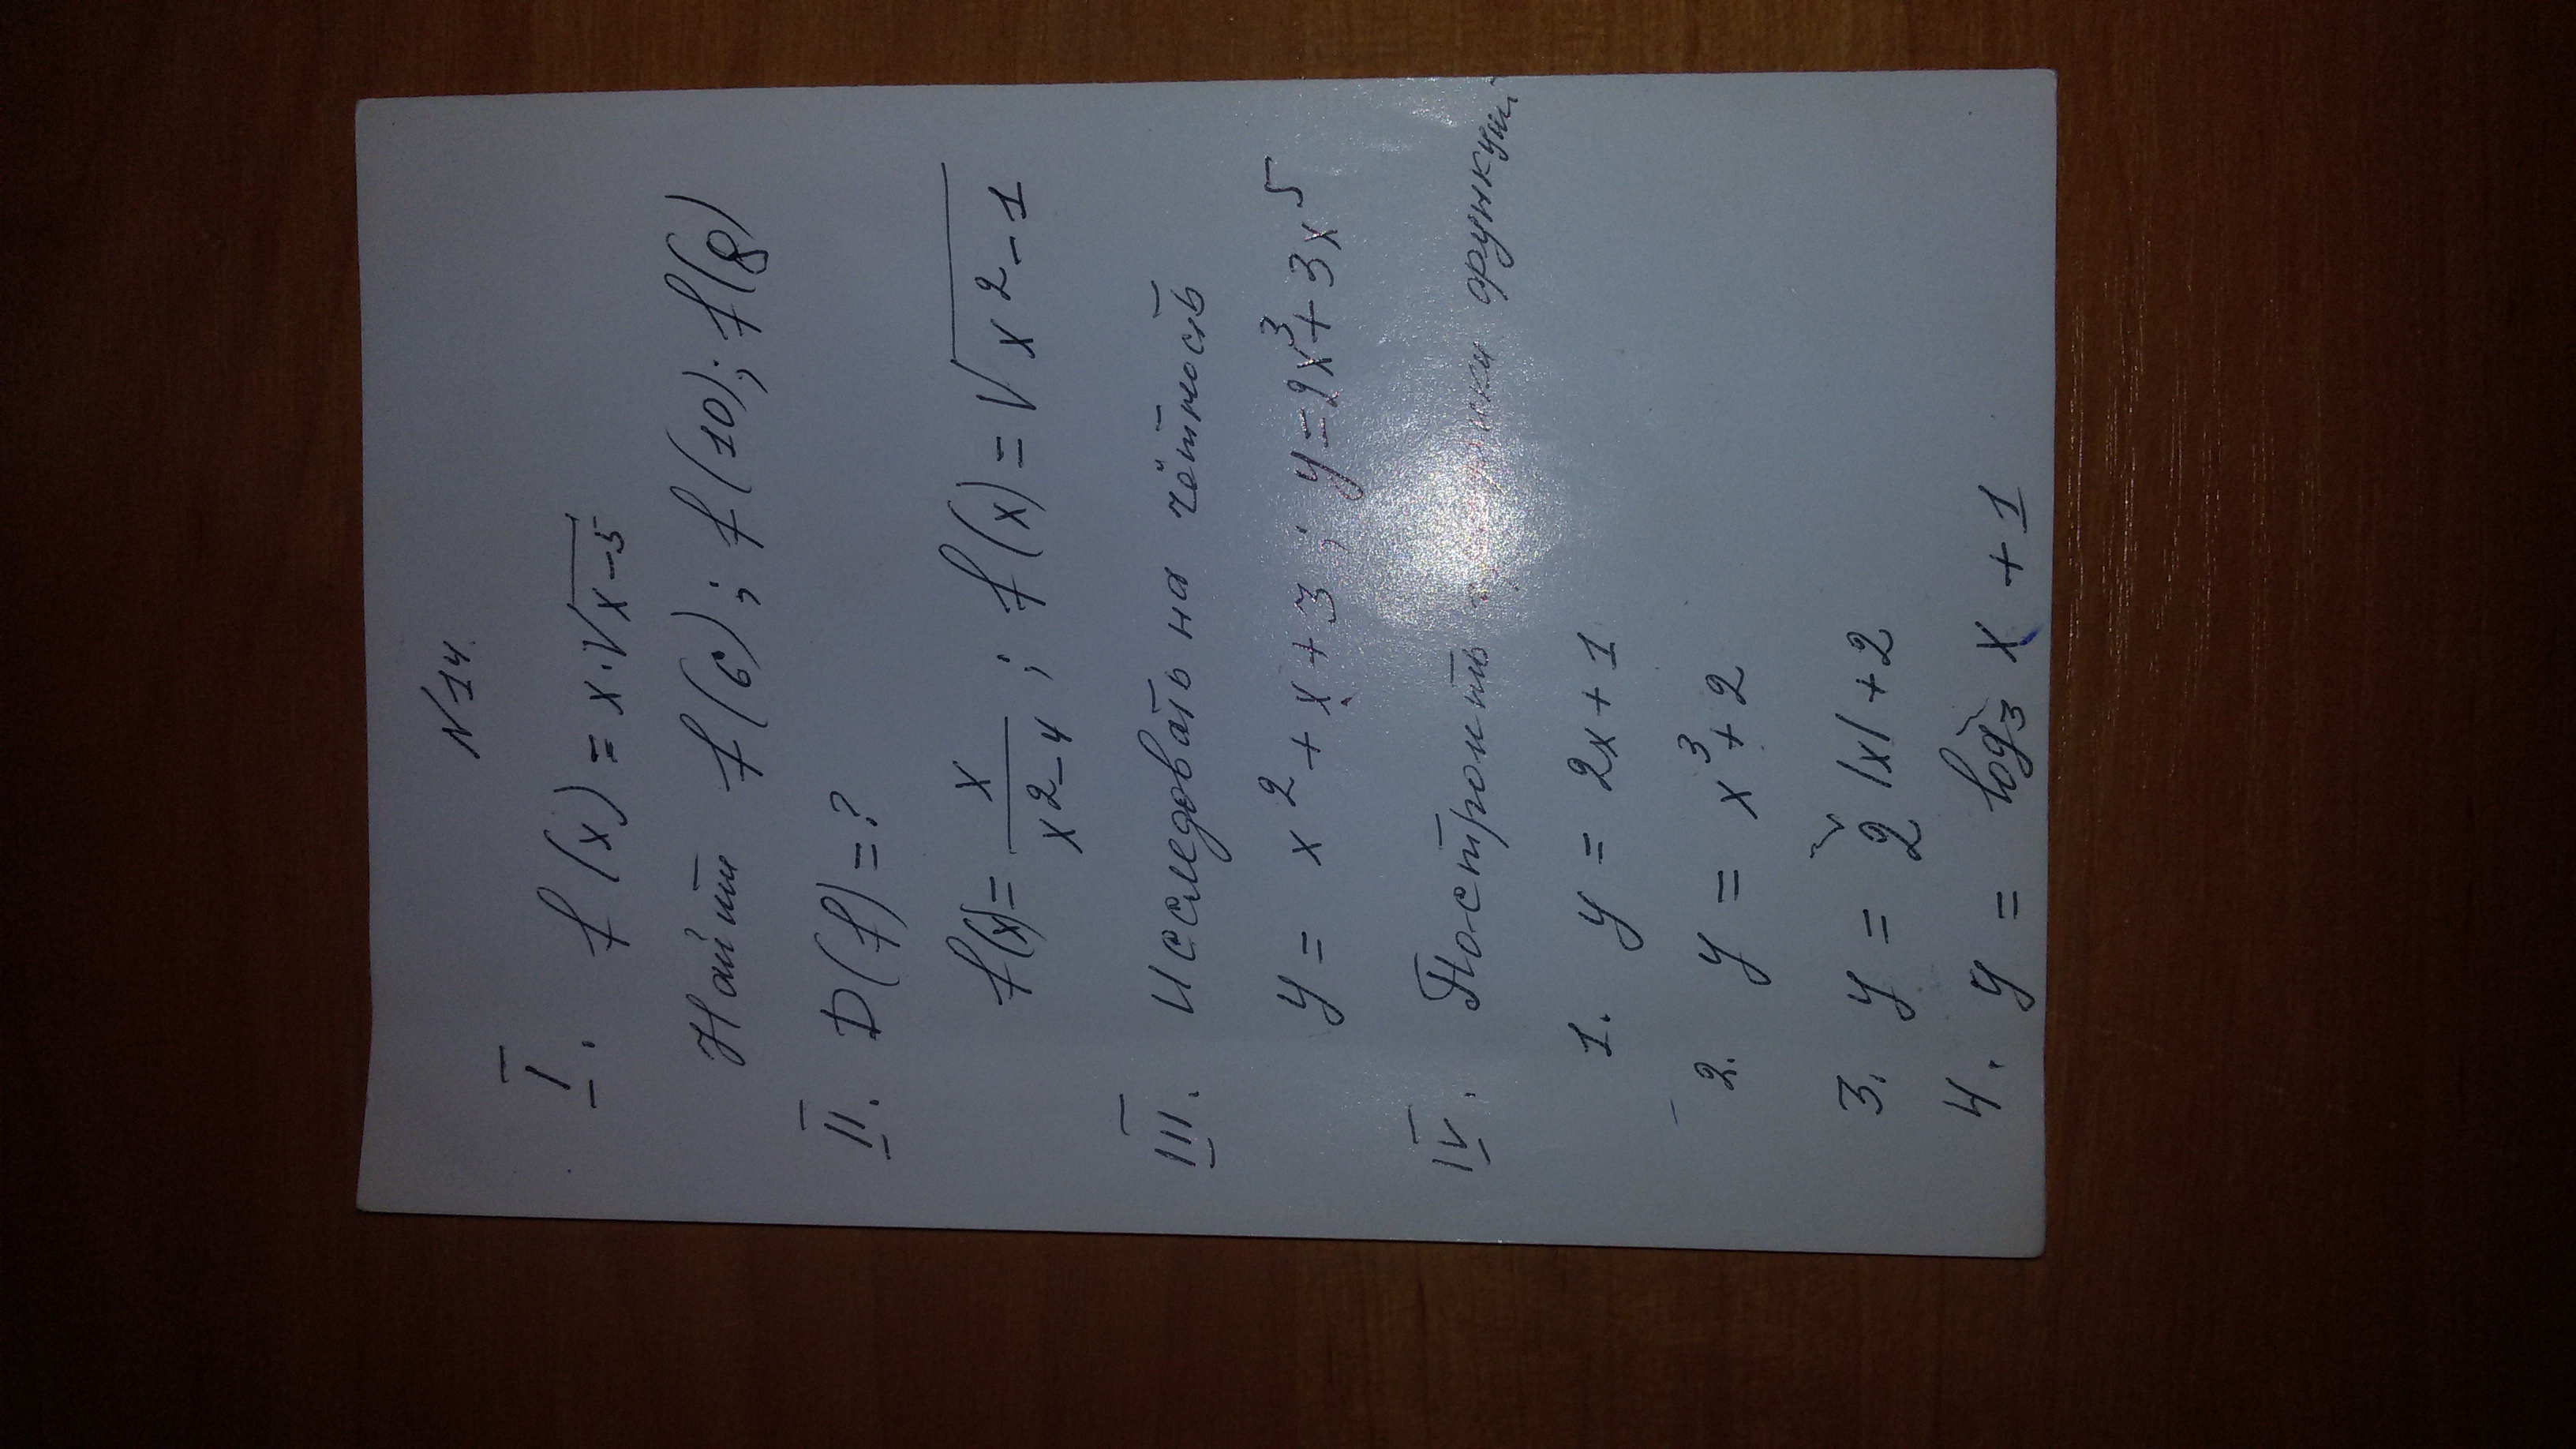 N 14.
I. f(x) = x·√x-5
Найти f(6); f(10); f(8)
II. D(f)=?
f(x)= x/x²-4 ; f(x)=√x²-1
III. Исследовать на чётность
y = x²+x+3; y=2x³+3x⁵
IV. Построить графики функций
1. y = 2x+1
2. y = x³+2
3. y = 2|x|+2
4. y = log₃ x+1